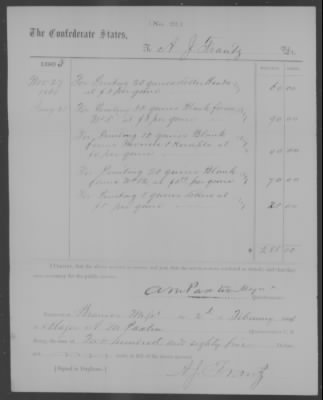 (No. 22.)
The Confederate States,
To A. J. Frantz Dr.
186 3
Nov 27 For Printing 20 quires Letter Heads
1862 at $3 per quire 60 00
Jany 20 For Printing 30 quires Blank forms
No 5 at $3 per quire 90 00
For Printing 10 quires Blank
forms
at $4 per quire 40 00
For Printing 20 quires Blank
forms No 22 at per quire 70 00
For Printing quires
at $5 per quire 25 00
$ 285 00
I CERTIFY, that the above account is correct and just; that the services were rendered as stated, and that they
were necessary for the public service.
A M Paxton Maj &
Quartermaster.
RECEIVED at Brandon Miss, the 2d of February 186
of Major A. M. Paxton Quartermaster C. S.
Army, the sum of Two hundred and eighty five dollars
cents, in full of the above account.
[Signed in Duplicate.] A. J. Frantz